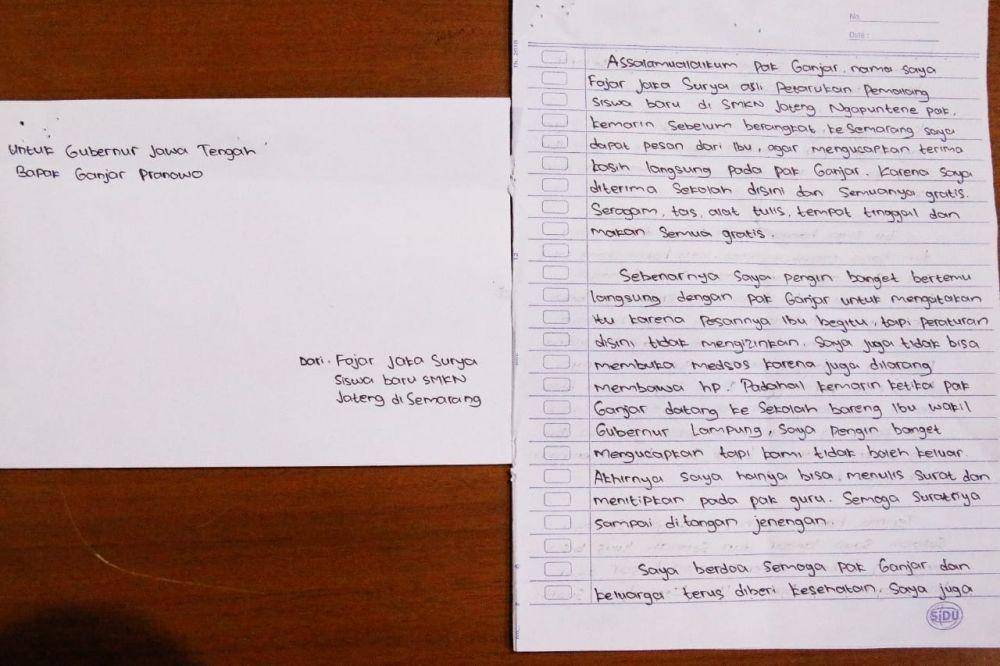 Untuk Gubernur Jawa Tengah
Bapak Ganjar Pranowo
Dari. Fajar Jaka Surya
Siswa baru SMKN
Jateng di Semarang
No.
Date :
Assalamualaikum pak Ganjar, nama saya
Fajar Jaka Surya asli Petarukan Pemalang
siswa baru di SMKN Jateng Ngapuntene pak,
kemarin sebelum berangkat ke Semarang saya
dapat pesan dari Ibu, agar mengucapkan terima
kasih langsung pada pak Ganjar. Karena saya
diterima Sekolah disini dan semuanya gratis.
Seragam, tas, alat tulis, tempat tinggal dan
makan semua gratis.
Sebenarnya saya pengin banget bertemu
langsung dengan pak Ganjar untuk mengatakan
itu karena pesannya Ibu begitu, tapi peraturan
disini tidak mengizinkan. Saya juga tidak bisa
membuka medsos karena juga dilarang
membawa hp. Padahal kemarin ketika pak
Ganjar datang ke Sekolah bareng Ibu wakil
Gubernur Lampung, saya pengin banget
mengucapkan tapi kami tidak boleh keluar.
Akhirnya saya hanya bisa menulis surat dan
menitipkan pada pak guru. Semoga suratnya
sampai ditangan jenengan.
Saya berdoa semoga pak Ganjar dan
keluarga terus diberi kesehatan. Saya juga
SiDU